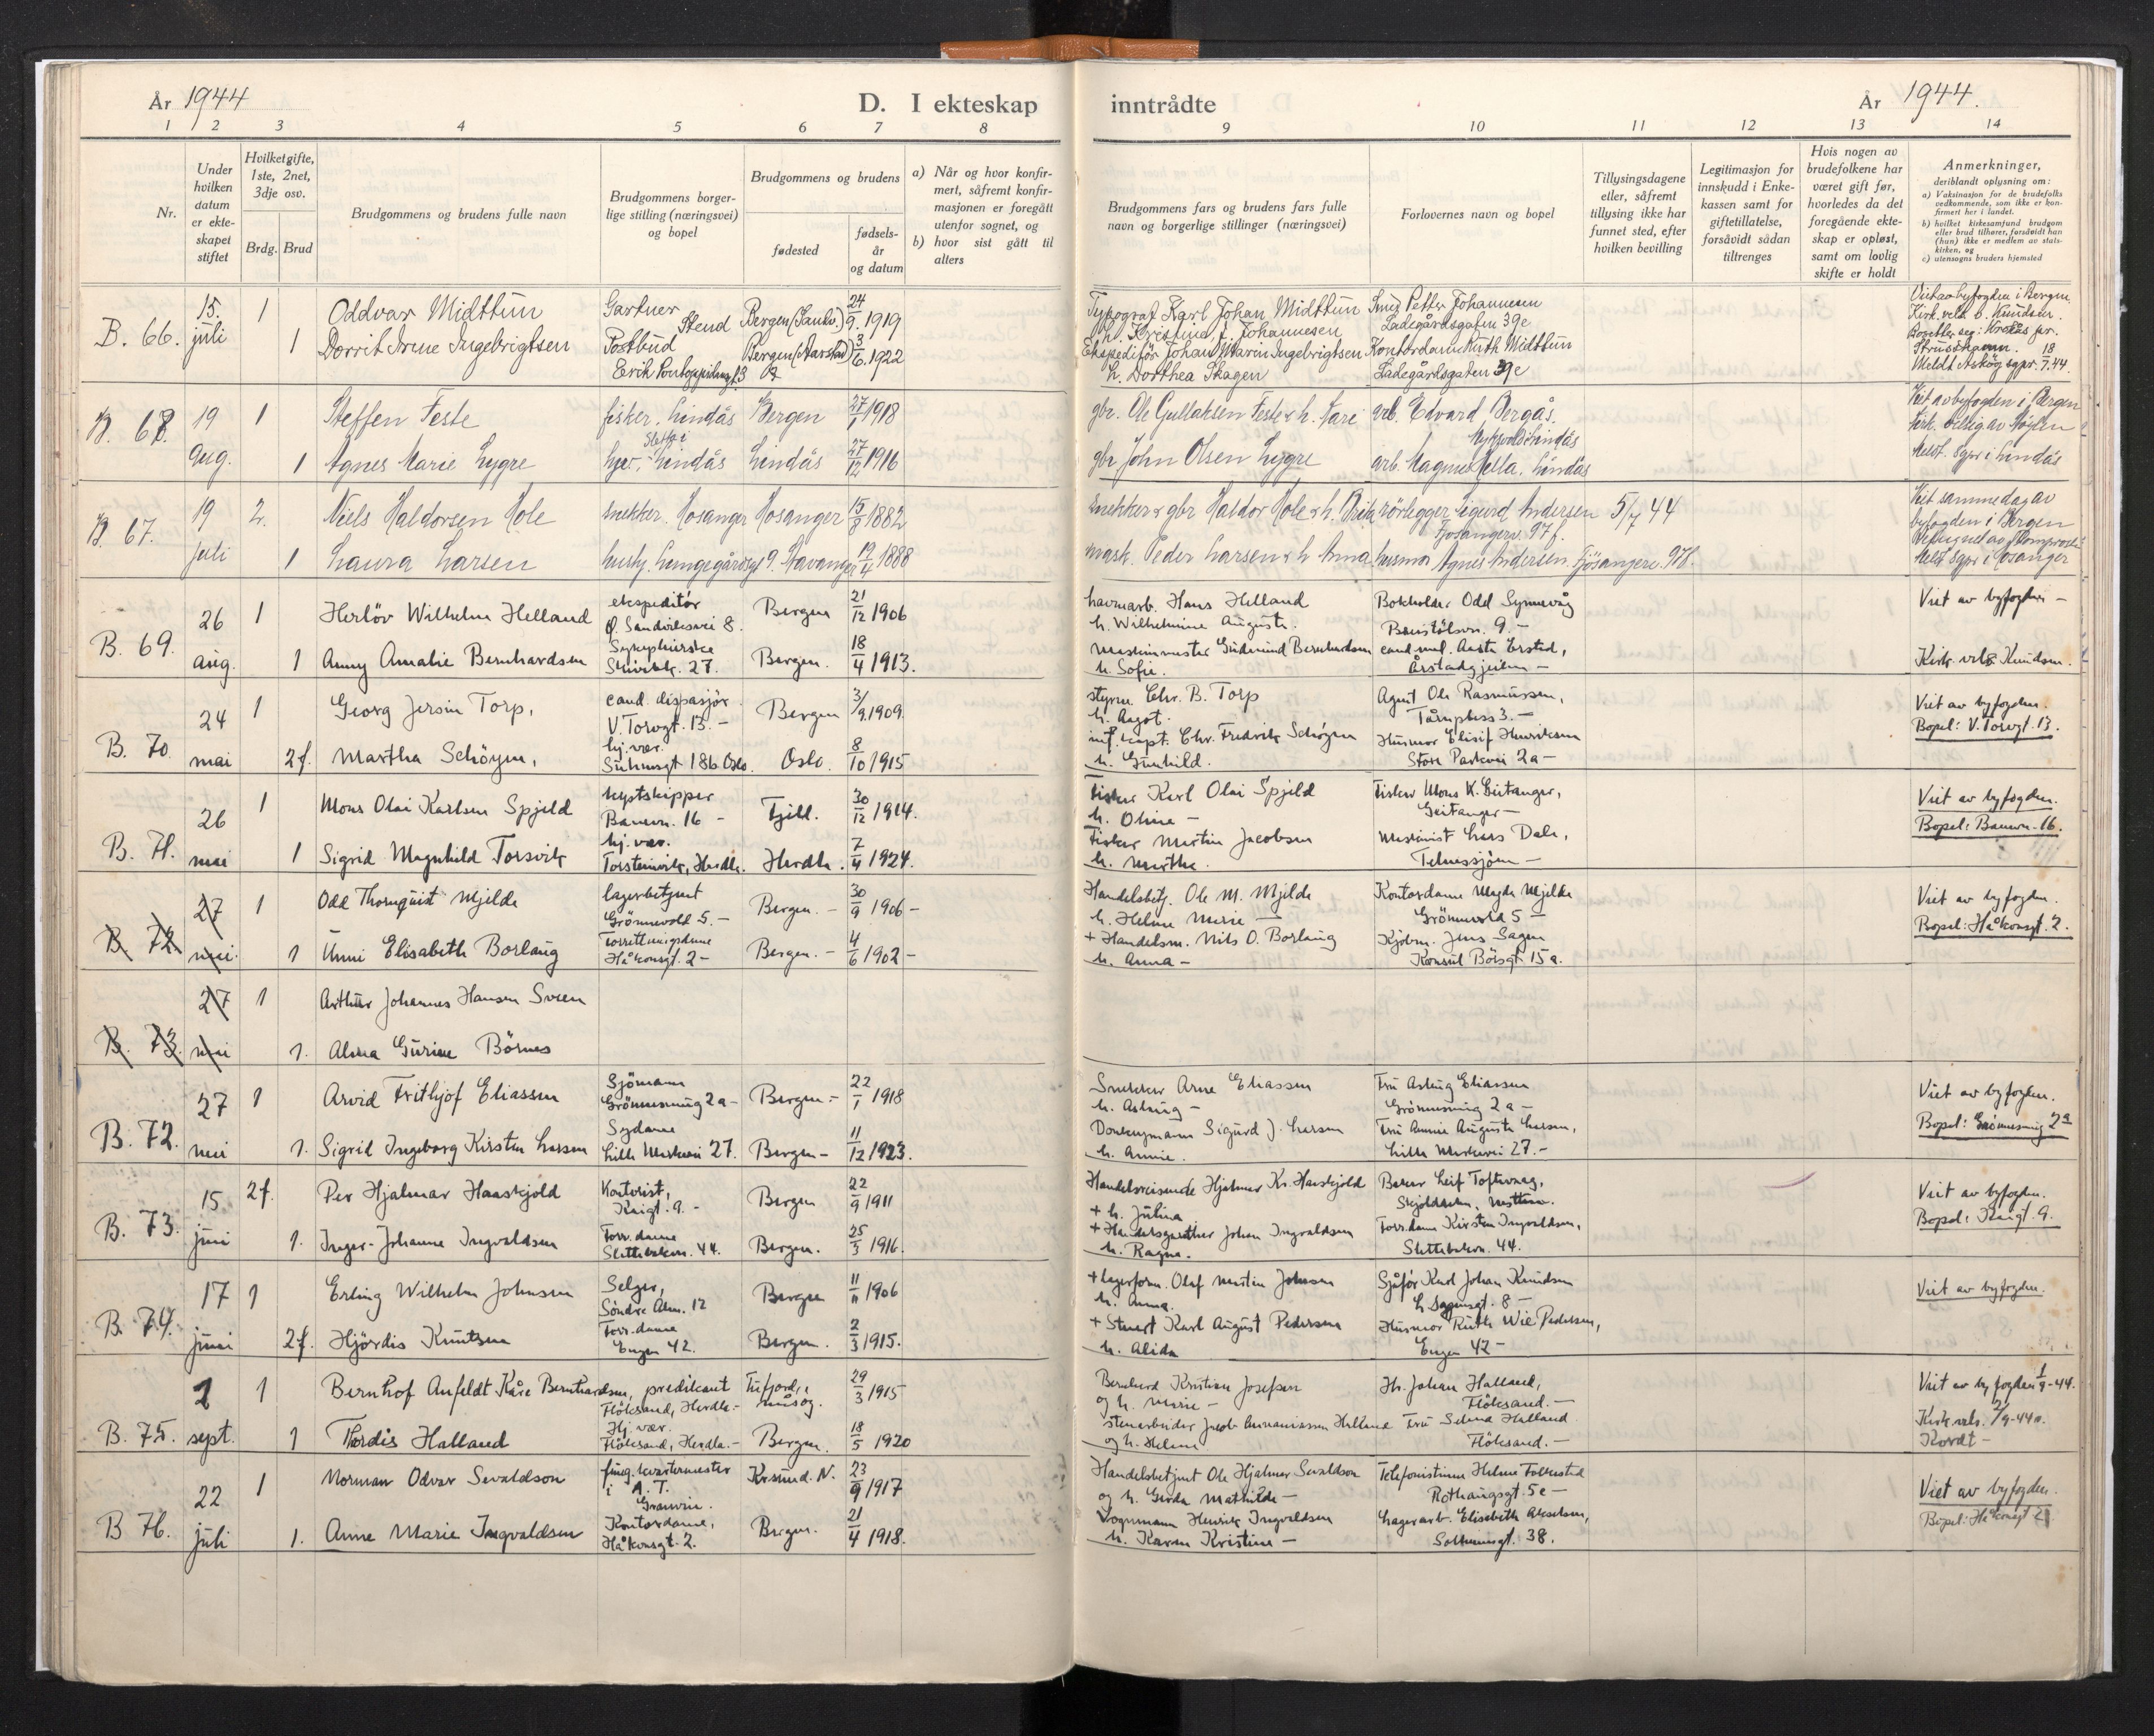 År 1944
D. I ekteskap
inntrådte
År 1944.
1 2 3 4 5 6 7 8
9 10 11 12 13 14
Nr.
Under hvilken datum er ekteskapet stiftet
Hvilket gifte, 1ste, 2net, 3dje osv.
Brdg. Brud
Brudgommens og brudens fulle navn
Brudgommens borgerlige stilling (næringsvei) og bopel
Brudgommens og brudens
fødested
fødselsår og datum
a) Når og hvor konfirmert, såfremt konfirmasjonen er foregått utenfor sognet, og
b) hvor sist gått til alters
Brudgommens fars og brudens fars fulle navn og borgerlige stillinger (næringsvei)
Forlovernes navn og bopel
Tillysingsdagene eller, såfremt tillysing ikke har funnet sted, efter hvilken bevilling
Legitimasjon for innskudd i Enkekassen samt for giftetillatelse, forsåvidt sådan tiltrenges
Hvis nogen av brudefolkene har været gift før, hvorledes da det foregående ekteskap er opløst, samt om lovlig skifte er holdt
Anmerkninger,
deriblandt oplysning om:
a) Vaksinasjon for de brudefolks vedkommende, som ikke er konfirmert her i landet.
b) hvilket kirkesamfund brudgom eller brud tilhører, forsåvidt han (hun) ikke er medlem av statskirken, og
c) utensogns bruders hjemsted
B. 66. 15. juli
1 Oddvar Midttun Gartner Stend Bergen (Sandv.) 24/9. 1919
1 Dorrit Irene Ingebrigtsen Postbud Bergen (Aarstad) 3/6. 1922
Typograf Karl Johan Midttun
h. Kristine f. Johannesen
Ekspeditør Johan Marin Ingebrigtsen
h. Dorthea Skagen
Smed Petter Johannesen
Ladegårdsgaten 39e
Kontordame Ruth Midttun
Ladegårdsgaten 39e
Viet av byfogden i Bergen
Kirk. vels. b. Knudsen.
Strusshamn. 18/7.44.
Meldt Askøy sgpr.
B. 68. 19 aug.
1 Steffen Feste fisker. Lindås Bergen 27/1 1918
1 Agnes Marie Lygre hjv. Lindås Lindås 27/12 1916
gbr. Ole Gullaksen Feste & h. Kari
gbr John Olsen Lygre
arb. Edvard Bergås.
Lindås
arb. Magnus Mella. Lindås
Viet av byfogden i Bergen
Meldt. sgpr i Lindås
B. 67. 19 juli
2. Niels Haldorsen Hole snekker. Hosanger Hosanger 15/8 1882
1 Laura Larsen husly. Lungegårdsgt 9. Stavanger 19/4 1888
snekker & gbr Haldor Hole & h. Brita
mask. Peder Larsen & h Anna
rørlegger Sigurd Andersen
Fjøsangerv. 97 f.
husmor Agnes Andersen Fjøsangerv. 97f.
5/7 44
Viet samme dag av
byfogden i Bergen
Meldt sgpr i Hosanger
B. 69. 26 aug.
1 Herløv Wilhelm Helland ekspeditør Ø. Sandviksvei 8. Bergen 21/12 1906
1 Anny Amalie Bernhardsen Sykepleierske Bergen. 18/4 1913.
havnearb. Hans Helland
h. Wilhelmine Auguste.
Maskinmester Gudmund Bernhardsen
h. Sofie.
Bokholder Odd Synnevåg
9. –
cand. med. Aasta Ersted,
Viet av byfogden –
Kirk. vels. Knudsen.
B. 70. 24 mai
1 Georg Jersin Torp, cand. dispasjør V. Torvgt. 13. – Bergen 3/9. 1909.
2f. Martha Schøyen, hj. vær. Suhmsgt 18b Oslo. Oslo. 8/10 1915
styrm. Chr. B. Torp
h. Aagot.
inf. kapt. Chr. Fredrik Schøyen
h. Gunhild.
Agent Ole Rasmussen,
Tårnplass 3. –
Husmor Elisif Henriksen
Store Parkvei 2a –
Viet av byfogden.
Bopel: V. Torvgt. 13.
B. 71. 26 mai
1 Mons Olai Karlsen Spjeld kystskipper 16 – Fjell. 30/12 1914.
1 Sigrid Magnhild Torsvik hj. vær. Torsteinvik, Herdla. Herdla. 7/4 1924.
Fisker Karl Olai Spjeld
h. Oline –
Fisker Martin Jacobsen
h. Martha.
Fisker Mons K. Geitanger,
Geitanger –
Maskinist Lars Dale,
Telnessjøen –
Viet av byfogden.
B. 72. 27 mai.
1 Odd Thornquist Mjelde lagerbetjent Grønnevold 5. – Bergen. – 30/9 1906 –
1 Unni Elisabeth Borlaug Forretningsdame Håkonsgt. 2 – Bergen. – 4/6 1902 –
Handelsbetj. Ole M. Mjelde
h. Helene Marie –
+ Handelsm. Nils O. Borlaug
h. Anna –
Kontordame Magda Mjelde
Grønnevold 5 –
Kjøbm. Jens Sagen
Konsul Børsgt 15a.
Viet av byfogden.
Bopel: Håkonsgt. 2.
B. 73. 27 mai
1 Arthur Johannes Hansen Sveen
1. Alma Gurine Børnes
B. 72. 27 mai
1 Arvid Frithjof Eliassen Sjømann Grønnesmug 2a – Bergen. – 22/1 1918
1. Sigrid Ingeborg Kirsten Larsen Sydame Lille Markevei 27. Bergen – 11/12 1923.
Snekker Arne Eliassen
h. Astrup –
Donkeymann Sigurd J. Larsen
h. Annie.
Fru Astrup Eliassen
Grønnesmug 2a –
Fru Annie Augusta Larsen,
Lille Markevei 27. –
Viet av byfogden.
Bopel: Grønnesmug 2a
B. 73. 15 juni
2f. Per Hjalmar Haaskjold Kontorist, Kaigt. 9. – Bergen 22/9 1911
1. Inger-Johanne Ingvaldsen Forr. dame Slettebakkv. 44. Bergen. 25/3 1916.
Handelsreisende Hjalmar Kr. Haaskjold
+ h. Julina
+ Johan Ingvaldsen
h. Ragna.
Baker Leif Toftevaag,
Forr. dame Kirsten Ingvaldsen,
Slettebakkv. 44.
Viet av byfogden.
Bopel: Kaigt. 9.
B. 74. 17 juni
1 Erling Wilhelm Johnsen Selger, Søndre Alm. 12 Bergen 11/11 1906
2f. Hjørdis Knutsen Forr. dame Engen 42. Bergen. 2/3 1915.
+ Lagerform. Olaf Martin Johnsen
h. Anna.
+ Stuert Karl August Pedersen
h. Alida
Sjåfør Karl Johan Knudsen
8 –
Husmor Ruth Wie Pedersen,
Engen 42 –
Viet av byfogden.
B. 75. 2 sept.
1 Bernhof Anfeldt Kåre Bernhardsen, predikant Fløksand, Herdla. – Tufjord, 29/3 1915
1 Thordis Halland Hj. vær. Fløksand, Herdla. – Bergen. 18/5 1920
Bernhard Kristian Josefsen
og h. Marie –
stenarbeider Jacob Halland
og h. Helene
Hr. Johan Halland,
Fløksand. –
Fru Selma Halland
Fløksand. –
Viet av byfogden 1/9-44.
Kirk. vels. 2/9-44
B 76. 22 juli
1 Norman Odvar Sevaldson fung. kvartermester i A. T. Granvin. Krsund. N. 23/9 1917
1. Anne Marie Ingvaldsen Kontordame, Håkonsgt. 2. Bergen. 21/4 1918.
Handelsbetjent Ole Hjalmar Sevaldson
og h. Gerda Mathilde –
Vognmann Henrik Ingvaldsen
h. Karen Kristine –
Telefonistinne Helene Falkestad
Rothaugsgt. 5e –
Lagerarb. Elisabeth Akselsen,
Solheimsgt. 38.
Viet av byfogden.
Bopel: Håkonsgt 2